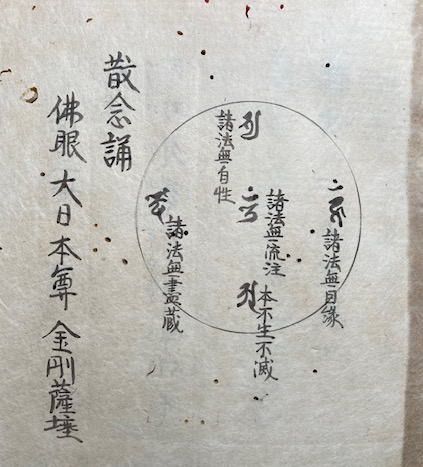 諸法無自縁
諸法無流注
本不生不滅
諸法無自性
諸法無盡蔵
散念誦
佛眼 大日 本尊 金剛薩埵